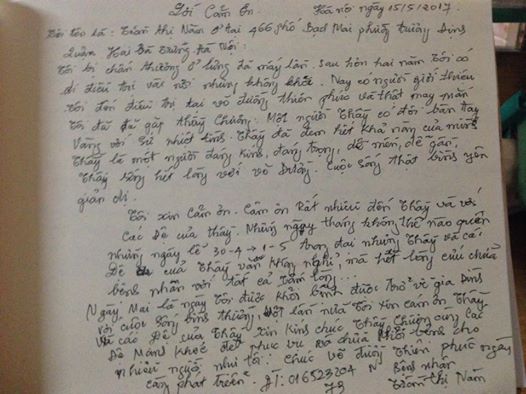 Lời Cảm Ơn. Hà nội ngày 15/5/2017.
Tôi tên là: Trần Thị Năm ở tại 466 phố Bạch Mai phường Trương Định
Quận Hai Bà Trưng Hà Nội:
Tôi bị chấn thương ở lưng đã mấy lần. Sau hơn hai năm Tôi có
đi điều trị vài nơi nhưng không khỏi. Nay có người giới thiệu
Tôi đến điều trị tại võ đường thiên phúc và thật may mắn
Tôi đã gặp thầy Chường. Một người Thầy có đôi bàn tay
Vàng với sự nhiệt tình. Thầy đã đem hết khả năng của mình
Thầy là một người đáng kính, đáng trọng, dễ mến, dễ gần,
Thầy sống hết lòng với võ Đường. Cuộc sống thật bình yên
giản dị.
Tôi xin cảm ơn. Cảm ơn Rất nhiều đến Thầy và với
Các Đệ của thầy. Những ngày tháng không thể nào quên
những ngày lễ 30-4 → 1-5 nhưng Thầy và các
Đệ của Thầy vẫn không nghỉ, mà hết lòng cứu chữa
bệnh nhân với tất cả tấm lòng...
Ngày Mai là ngày Tôi được khỏi bệnh được trở về gia Đình
với cuộc sống bình thường, Một lần nữa Tôi xin cảm ơn Thầy
và các Đệ của Thầy xin kính chúc Thầy Chường cùng các
Đệ Mạnh Khoẻ để phục vụ và chữa khỏi bệnh cho
nhiều người như tôi. Chúc võ đường Thiên phúc ngày
càng phát triển. ĐT: 016523204 Bệnh nhân
78 Trần Thị Năm